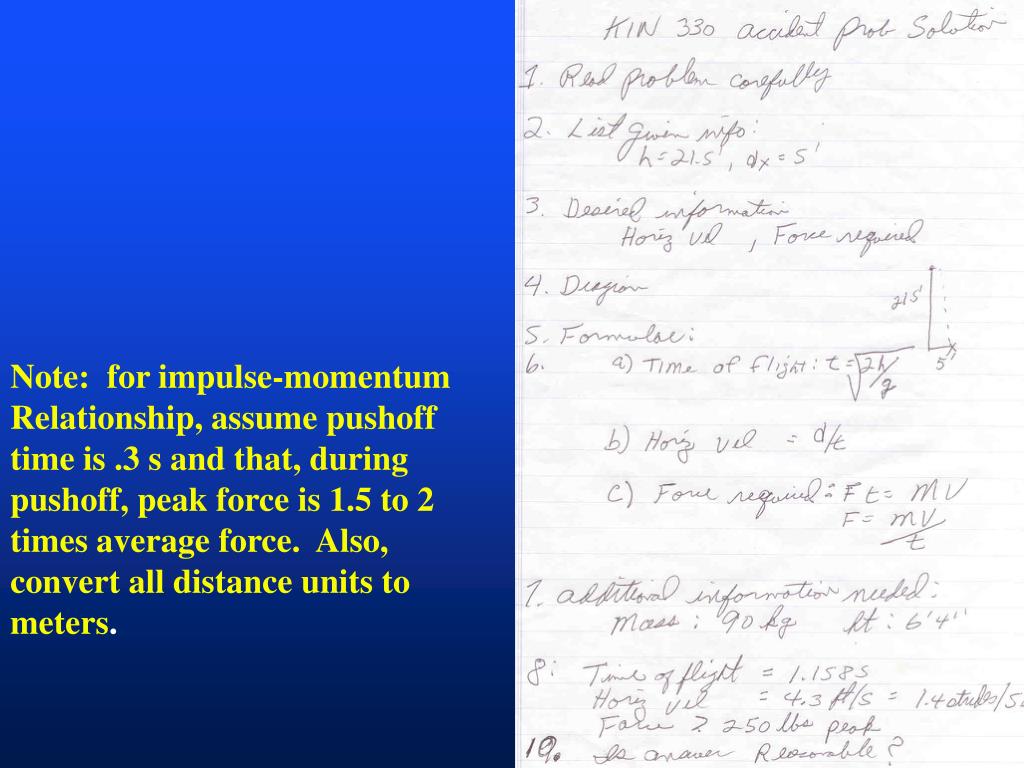 Note: for impulse-momentum
Relationship, assume pushoff
time is .3 s and that, during
pushoff, peak force is 1.5 to 2
times average force. Also,
convert all distance units to
meters.
KIN 330 accident prob Solution
1. Read problem carefully
2. List given info:
h=21.5', dx = 5'
3. Desired information
Horiz vel , Force required
4. Diagram
21.5'
5'
5. Formulae:
6. a) Time of flight: t = √2h/g
b) Horiz vel = d/t
c) Force required: Ft = MV
F = mV/t
7. additional information needed:
Mass: 90 kg ht: 6'4"
8: Time of flight = 1.158s
Horiz vel = 4.3 ft/s = 1.4
Force 250 lbs peak
10. Is answer Reasonable?